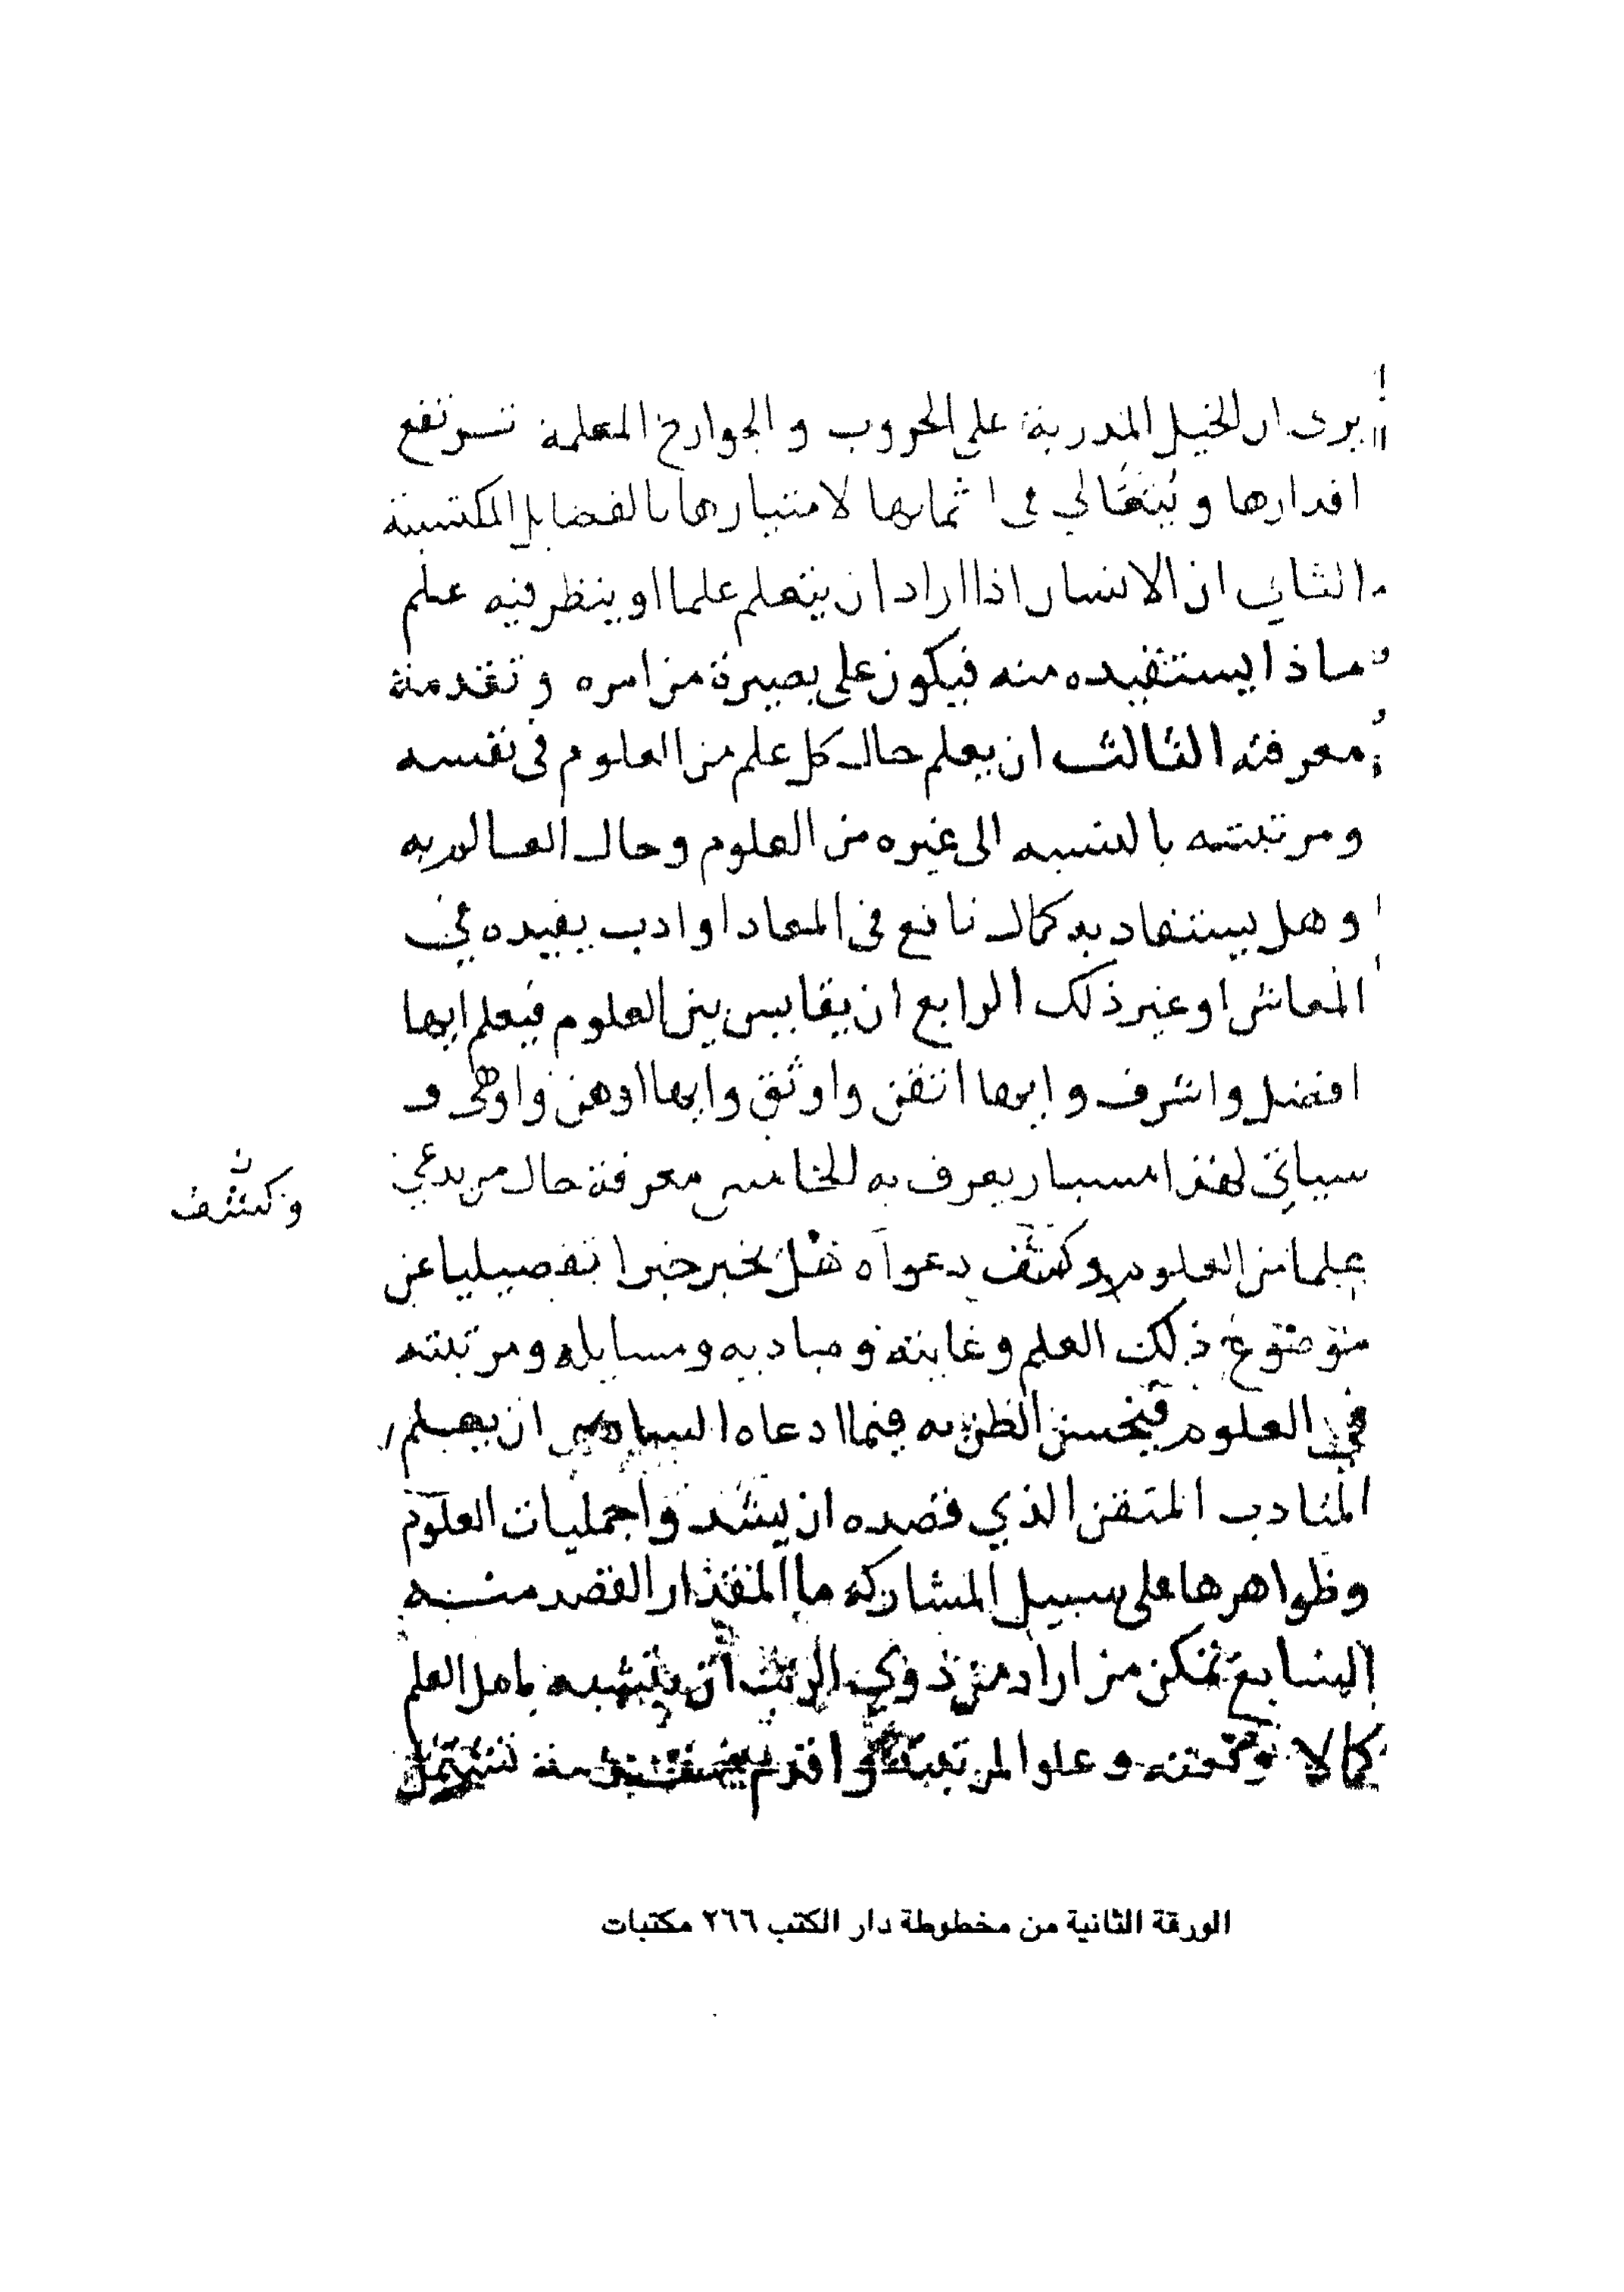 يرى ان الخيل المدربة على الحروب والجوارح المعلمة ترتفع
اقدارها ويتغالي في اثمانها لامتيازها بالفضايل المكتسبة
الثاني ان الانسان اذا اراد ان يتعلم علما او ينظر فيه علم
ماذا يستفيده منه فيكون على بصيرة من امره وتقدمة
معرفته الثالث ان يعلم حال كل علم من العلوم في نفسه
ومرتبته بالنسبه الى غيره من العلوم وحال العالم به
وهل يستفاد به كمال نافع في المعاد او ادب يفيده في
المعاش او غير ذلك الرابع ان يقايس بين العلوم فيعلم ايها
افضل واشرف وايها اتقن واوثق وايها اوهن واوهى و
سياتي لهذا مسبار يعرف به الخامس معرفة حال من يدعي
علما من العلوم وكشف دعواه هل يخبر خبرا تفصيليا عن
وكشف
موضوع ذلك العلم وغايته ومباديه ومسايله ومرتبته
في العلوم فيحسن الظن به فيما ادعاه السادس ان يعلم
المتادب المتقن الذي قصده ان يشدوا جمليات العلوم
وظواهرها على سبيل المشاركه ما المقدار القصد منه
السابع تمكن من اراد من ذوي الرتب ان يتشبه باهل العلم
كمالا وعلو المرتبة
الورقة الثانية من مخطوطة دار الكتب ٢٦٦ مكتبات